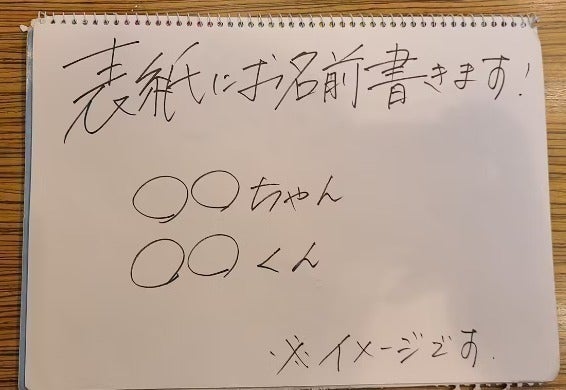 表紙にお名前書きます!
○○ちゃん
○○くん
※イメージです.